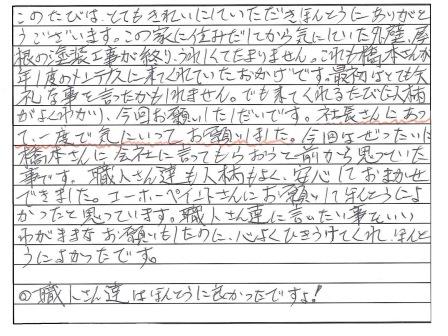 このたびは、とてもきれいにしていただきほんとうにありがと
うございます。この家に住みだしてから気にしていた外壁、屋
根の塗装工事が終り、うれしくてたまりません。これも橋本さんが
年1度のメンテナスに来てくれていたおかげです。最初はとても失
礼な事を言ったかもしれません。でも来てくれるたびに人柄
がよくわかり、今回お願いしたしだいです。社長さんにあっ
て、一度で気にいってお願いしました。今回はぜったいに
橋本さんに会社に言ってもらおうと前から思っていた
事です。職人さん達も人柄もよく、安心しておまかせ
できました。ユーホーペイントさんにお願いしてほんとうによ
かったと思っています。職人さん達に言いたい事をいい
わがままなお願いもしたのに、心よくひきうけてくれ、ほんと
うによかったです。
◎職人さん達はほんとうに良かったですよ!